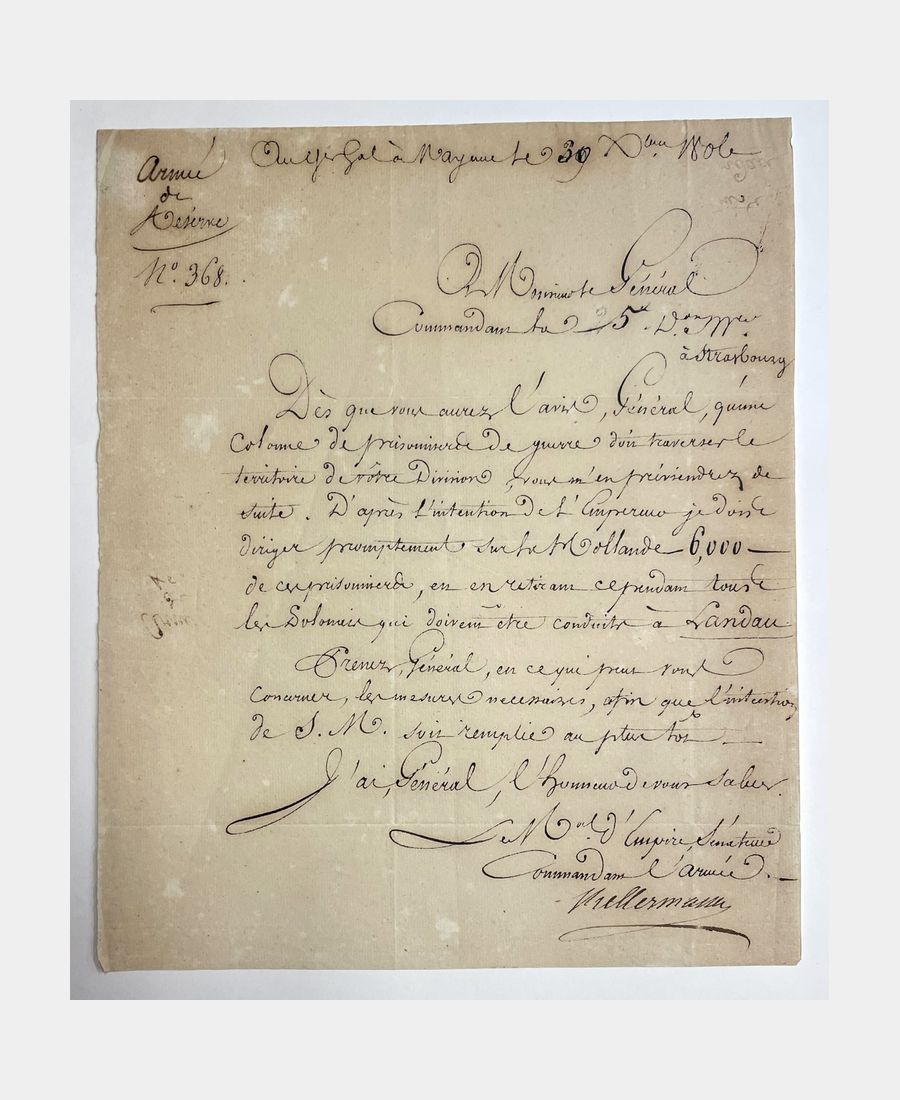 Au Qer Gal à Mayence le 30 Xbre 1806
Armée
de
Réserve
No. 368.
A Monsieur le Général
Commandant la 5e. Don. Mre.
à Strasbourg
Dès que vous aurez l'avis, Général, qu'une
Colonne de prisonniers de guerre doit traverser le
territoire de vôtre Division, vous m'en préviendrez de
suite. D'après l'intention de l'Empereur je dois
diriger promptement sur la Hollande 6,000
de ces prisonniers, en en retirant cependant tous
les Polonais qui doivent être conduits à Landau.
Prenez, Général, en ce qui peut vous
concerner, les mesures nécessaires, afin que l'intention
de S. M. soit remplie au plus tôt
J'ai, Général, l'honneur de vous saluer.
Le Mal. d'Empire, Sénateur
Commandant l'armée.
Kellermann